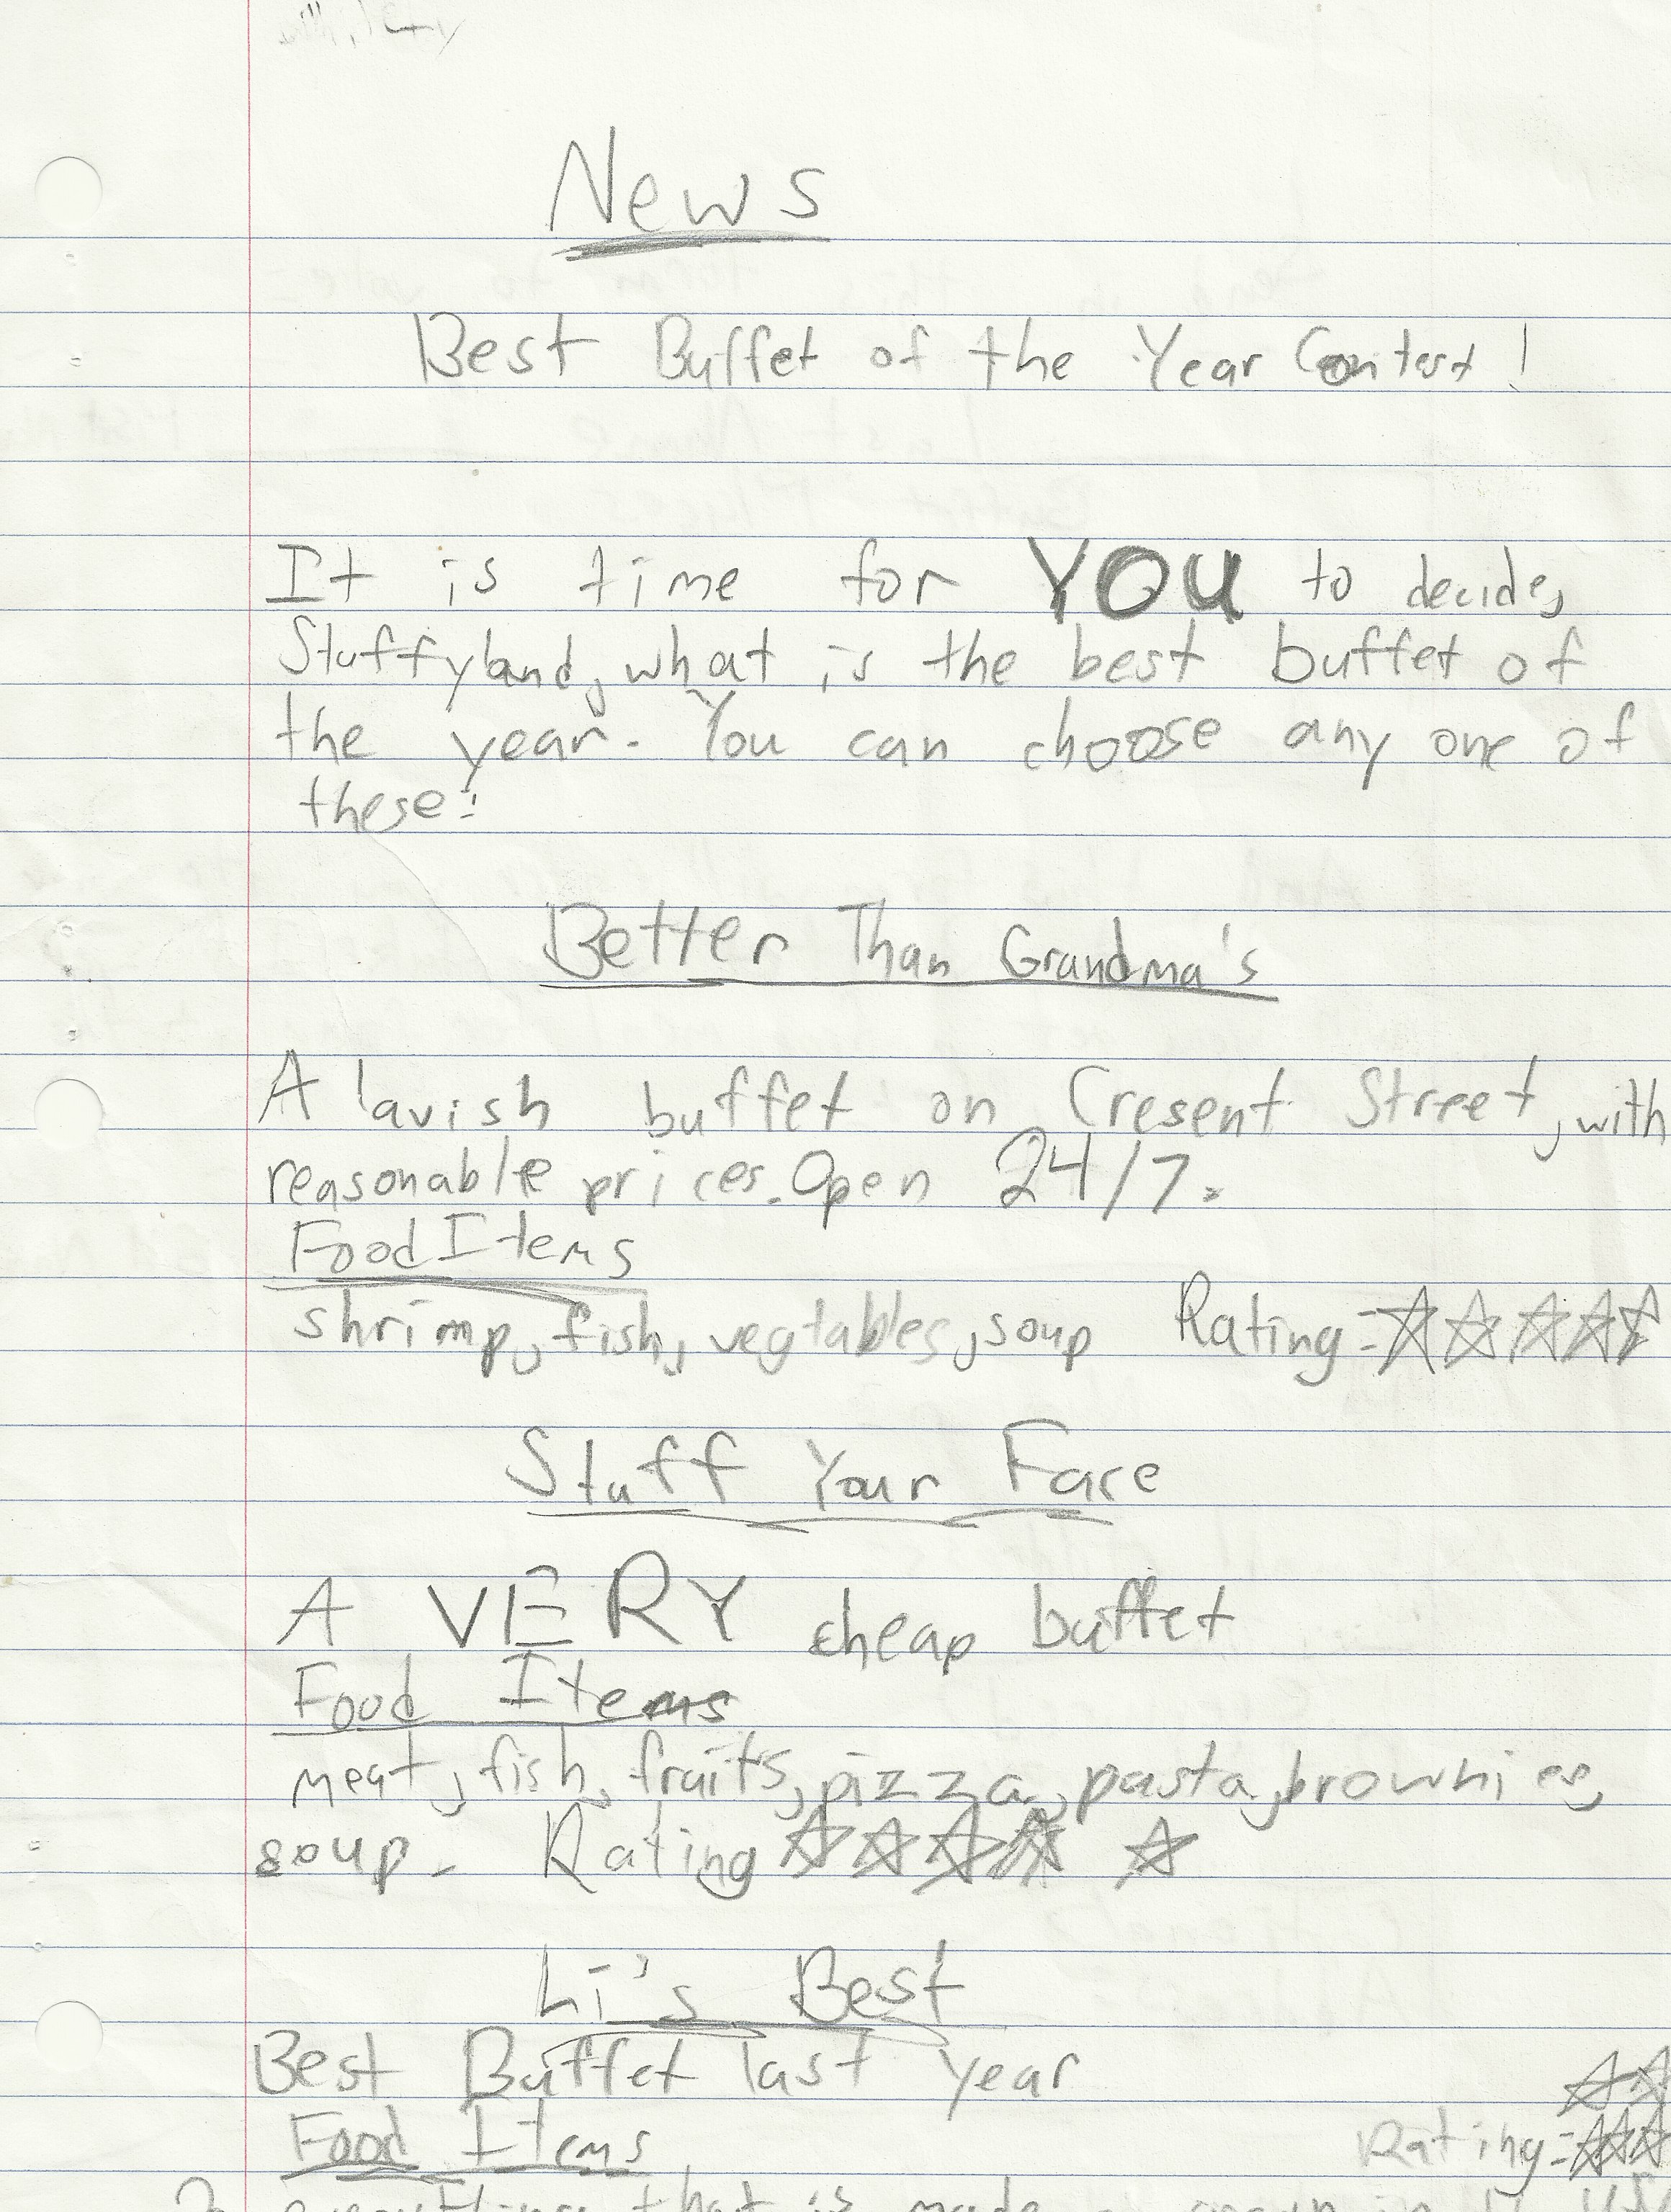 News
Best Buffet of the Year Contest!
It is time for YOU to decide,
Stuffyland, what is the best buffet of
the year. You can choose any one of
these:
Better Than Grandma's
A lavish buffet on Cresent Street, with
reasonable prices. Open 24/7.
Food Items
shrimp, fish, vegtables, soup Rating=☆☆☆☆☆
Stuff Your Face
A VERY cheap buffet
Food Items
meat, fish, fruits, pizza, pasta, brownies,
soup. Rating ☆☆☆☆ ☆
Li's Best
Best Buffet last year
Food Items
Rating=☆☆
everything that is made